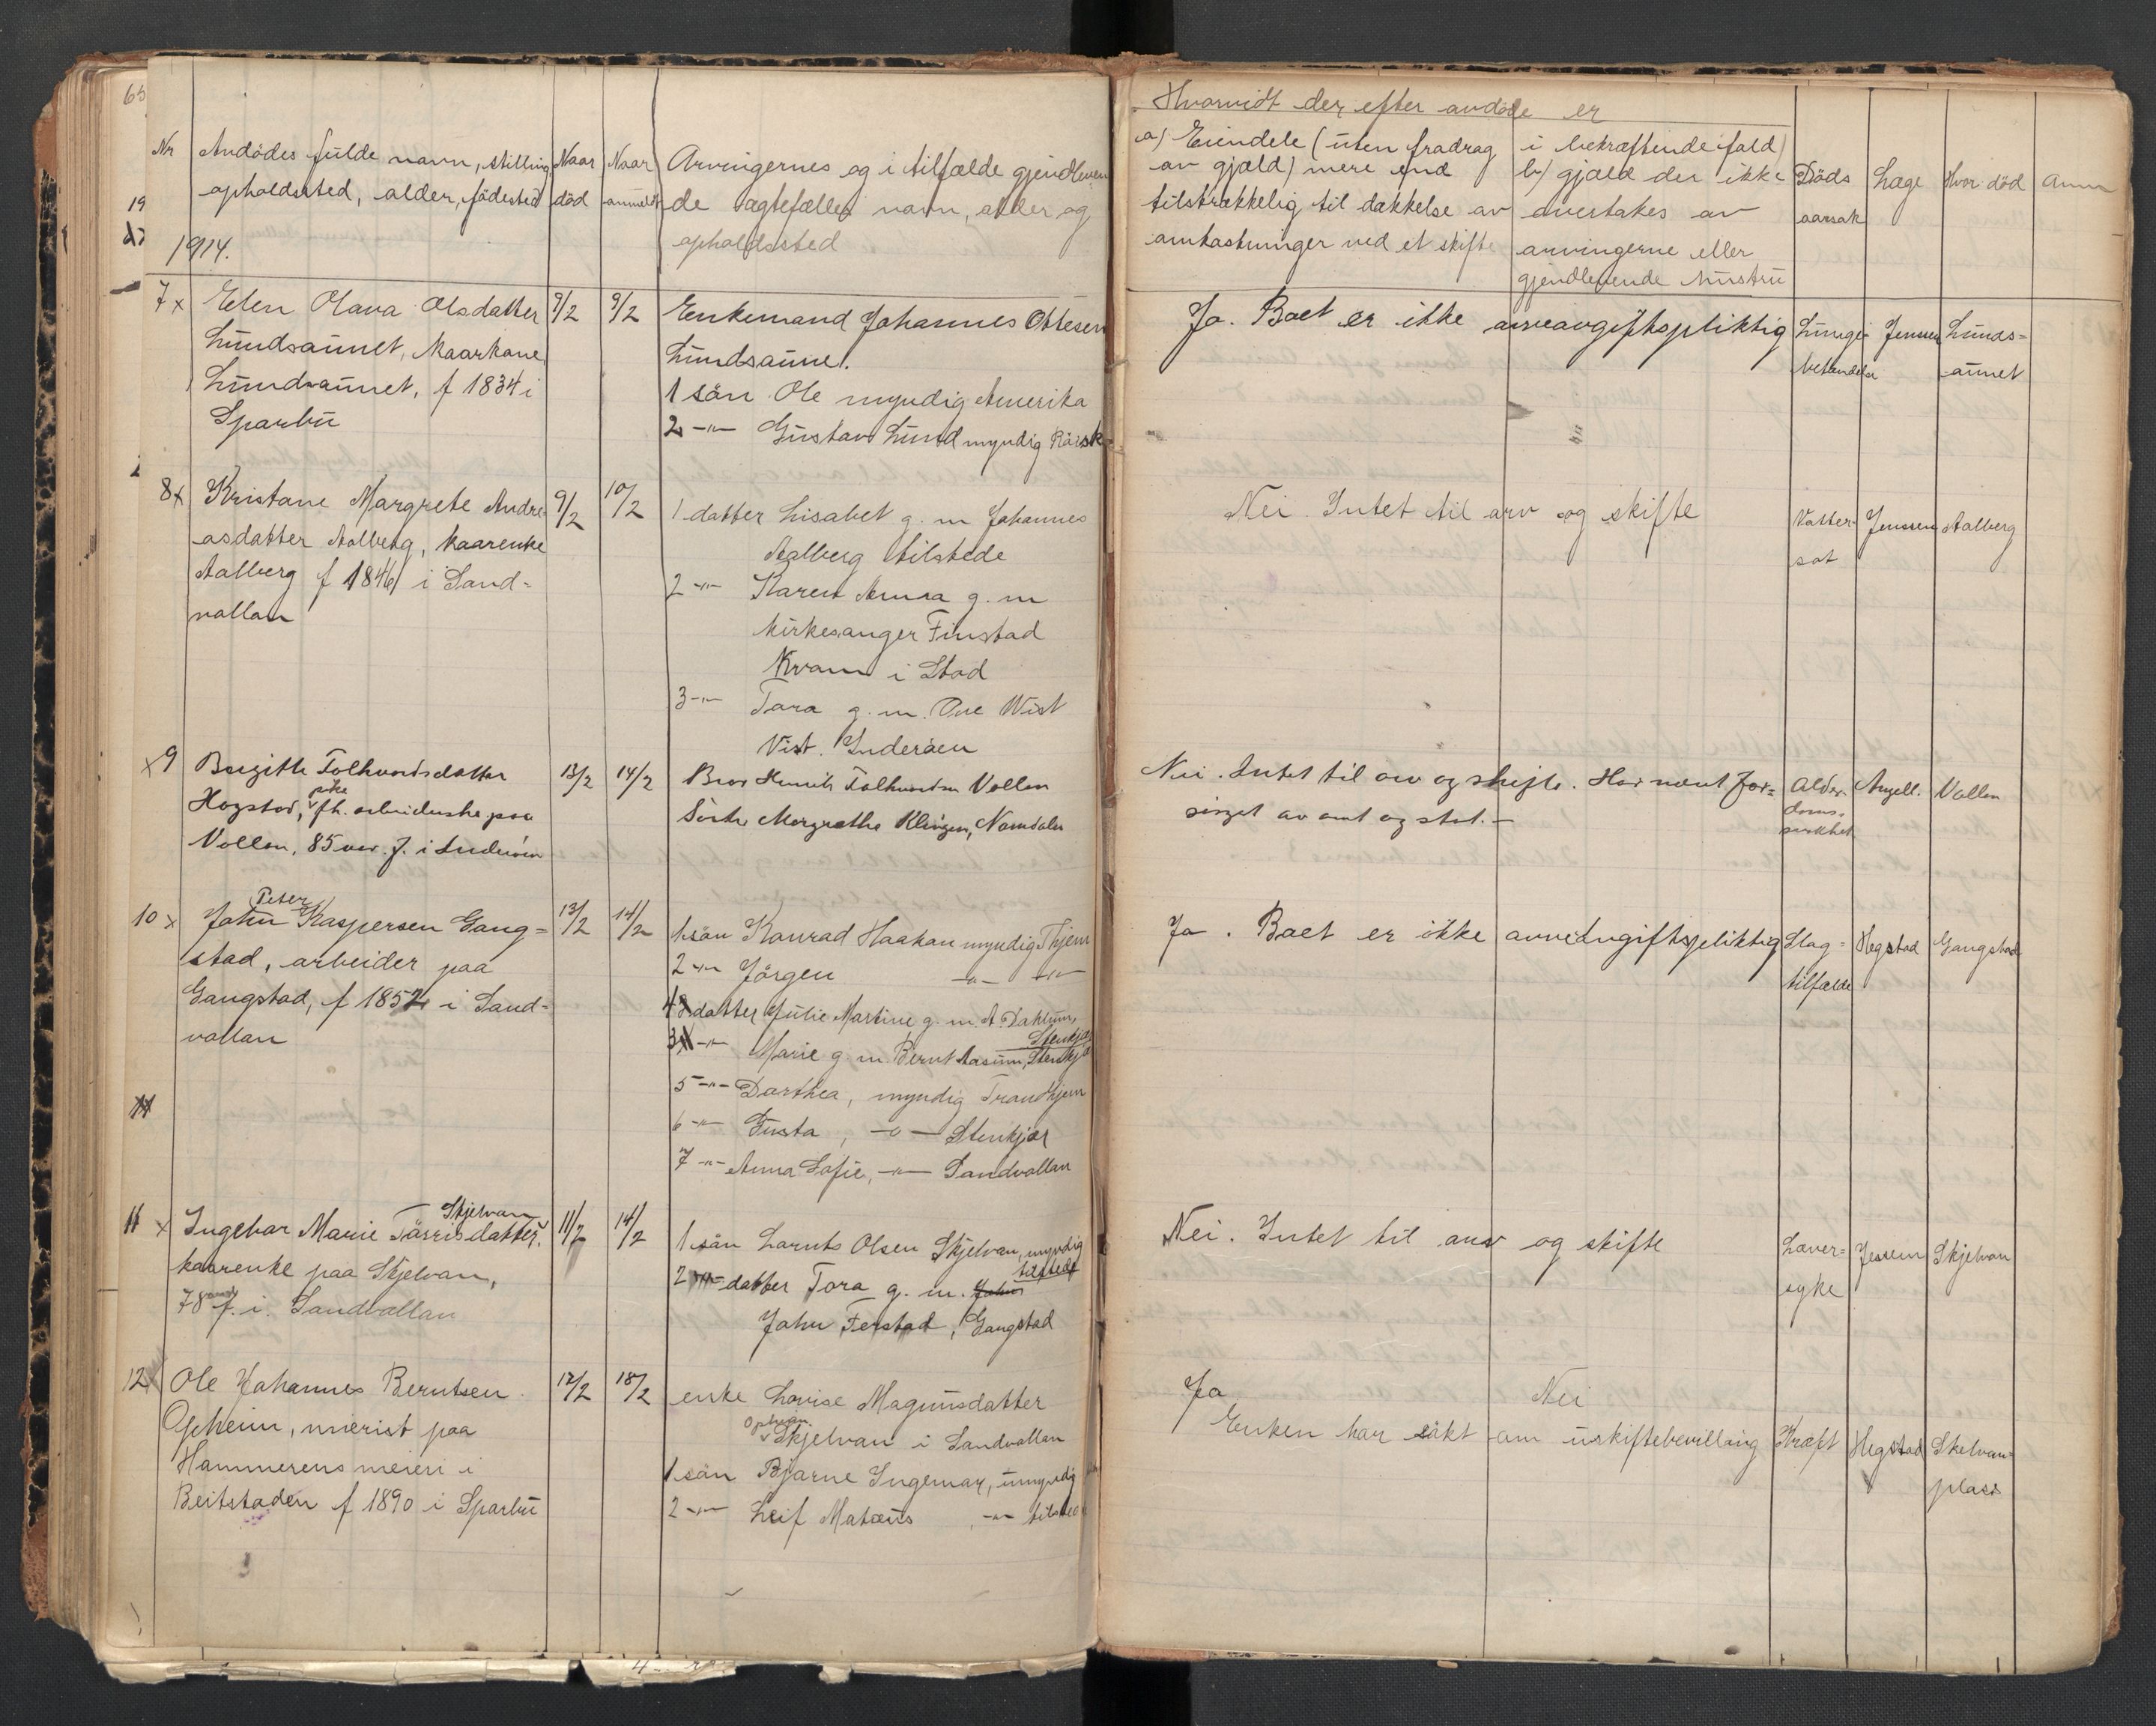 65
Nr Avdödes fulde navn, stilling
opholdssted, alder, födested
1914.
Naar
död
Naar
anmeldt
Arvingernes og i tilfælde gjenleven
de ægtefælles navn, alder og
opholdssted
Hvorvidt der efter avdöde er
a) Eiendele (uten fradrag
av gjæld) mere end
tilstrækkelig til dækkelse av
omkostninger ved et skifte
i bekræftende fald
b) gjæld der ikke
overtakes av
arvingerne eller
gjenlevende hustru
Döds
aarsak
Læge
Hvor död
Anm
19
7 x Elen Olava Olsdatter
Lundsaunet, kaarkone
Lundsaunet, f 1834 i
Sparbu
9/2
9/2
Enkemand Johannes Ottesen
Lundsaune.
1 sön Ole myndig Amerika
2 -"- Gustav Lund myndig
Ja. Boet er ikke arveavgiftspliktig
Lunge-
betændelse
Jenssen
Lunds=
aunet
8 x Kristane Margrete Andre
asdatter Aalberg, kaarenke
Aalberg f 1846 i Sand=
vollan
9/2
10/2
1 datter Lisabet g. m Johannes
Aalberg tilstede
2 -"- Karen Anna g. m
kirkesanger Finstad
Kvam i Stod
3 -"- Tora g. m. Ove Wist
Vist. Inderöen
Nei. Intet til arv og skifte
Vatter-
sot
Jenssen
Aalberg
x 9 Birgitte Tolhvordsdatter
Hogstad, pike fh. arbeiderske paa
Vollan, 85 aar. f. i Inderöen
13/2
14/2
Bror Henrik Tolhvordsen Vollan
Söster Margrethe Klingen, Namdalen
Nei. Intet til arv og skifte. Har nævnt for=
sörget av amt og stat.-
Alder-
doms-
svakhet
Angell.
Vollan
10 x John Peter Kaspersen Gang=
stad, arbeider paa
Gangstad, f 1852 i Sand=
vollan
13/2
14/2
1 sön Konrad Haakon myndig Thjem
2 -"- Jörgen -"- -"-
4 datter Julie Martine g. m. A. Dahlum,
Stenkjær
3 -"- Marie g. m. Bernt Aasum, Stenkjær
5 -"- Dorthea, myndig Trondhjem
6 -"- Gusta, -"- Stenkjær
7 -"- Anna Sofie, -"- Sandvollan
Ja. Boet er ikke arveavgiftspliktig
Slag=
tilfælde
Hegstad
Gangstad
11
11 x Ingebor Marie Törrisdatter Skjelvan,
kaarenke paa Skjelvan,
78 aar f. i. Sandvollan
11/2
14/2
1 sön Lornts Olsen Skjelvan, myndig
tilstede
2 -"- datter Tora g. m. John
John Ferstad, Gangstad
Nei. Intet til arv og skifte
Lever=
syke
Jessen
Skjelvan
12 x Ole Johannes Berntsen
Opheim, meierist paa
Hammerens meieri i
Beitstaden f 1890 i Sparbu
12/2
18/2
enke Lovise Magnusdatter
Opheim
Skjelvan i Sandvollan
1 sön Bjarne Ingemar, umyndig
2 -"- Leif Matæus, -"- tilstede
Ja
Nei
Enken har sökt om uskiftebevilling
Kræft
Hegstad
Skelvan=
plads